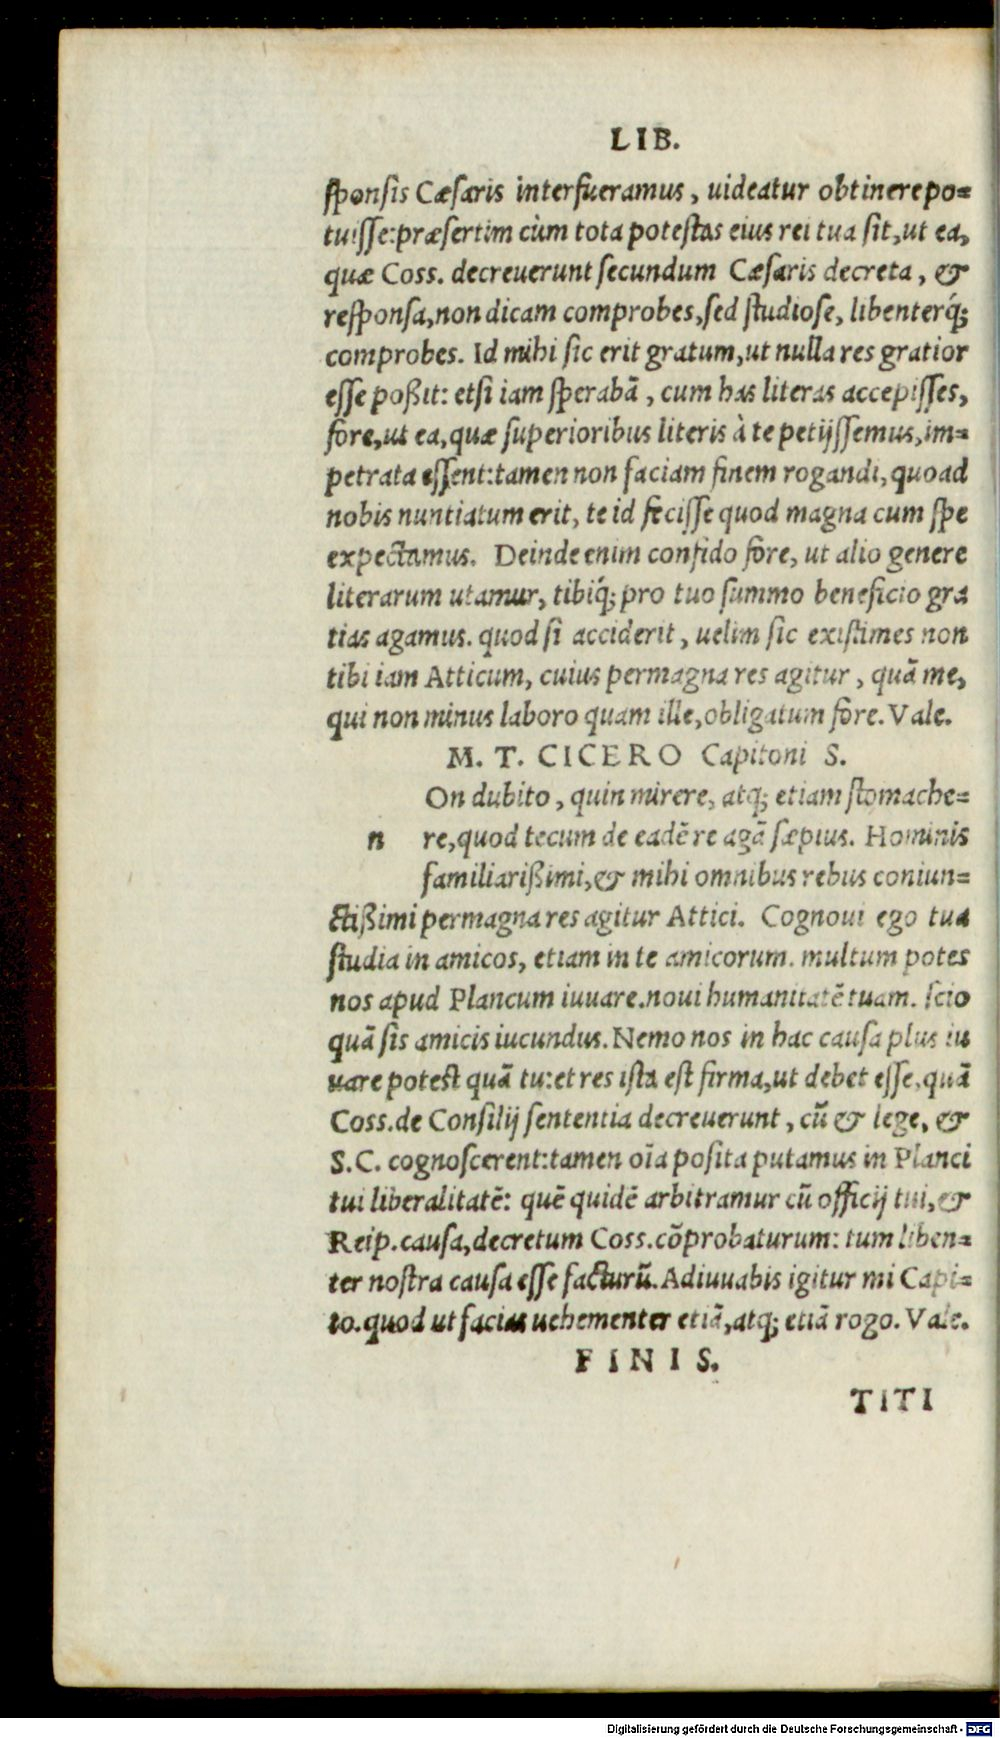 LIB.
sponsis Cæsaris interfueramus, uideatur obtinere po=
tuisse: præsertim cùm tota potestas eius rei tua sit, ut ea,
quæ Coss. decreuerunt secundum Cæsaris decreta, &
responsa, non dicam comprobes, sed studiose, libenterq́;
comprobes. Id mihi sic erit gratum, ut nulla res gratior
esse poßit: etsi iam sperabā, cum has literas accepisses,
fore, ut ea, quæ superioribus literis à te petijssemus, im=
petrata essent: tamen non faciam finem rogandi, quoad
nobis nuntiatum erit, te id fecisse quod magna cum spe
expectamus. Deinde enim confido fore, ut alio genere
literarum utamur, tibiq́; pro tuo summo beneficio gra
tias agamus. quod si acciderit, uelim sic existimes non
tibi iam Atticum, cuius permagna res agitur, quā me,
qui non minus laboro quam ille, obligatum fore. Vale.
M. T. CICERO Capitoni S.
On dubito, quin mirere, atq; etiam stomache=
n re, quod tecum de eadē re agā sæpius. Hominis
familiarißimi, & mihi omnibus rebus coniun=
ctißimi permagna res agitur Attici. Cognoui ego tua
studia in amicos, etiam in te amicorum. multum potes
nos apud Plancum iuuare. noui humanitatē tuam. scio
quā sis amicis iucundus. Nemo nos in hac causa plus iu
uare potest quā tu: et res ista est firma, ut debet esse, quā
Coss. de Consilij sententia decreuerunt, cū & lege, &
S.C. cognoscerent: tamen oīa posita putamus in Planci
tui liberalitatē: quē quidē arbitramur cū officij tui, &
Reip. causa, decretum Coss. cōprobaturum: tum liben=
ter nostra causa esse facturū. Adiuuabis igitur mi Capi=
to. quod ut facias uehementer etiā, atq; etiā rogo. Vale.
FINIS.
TITI
Digitalisierung gefördert durch die Deutsche Forschungsgemeinschaft - DFG